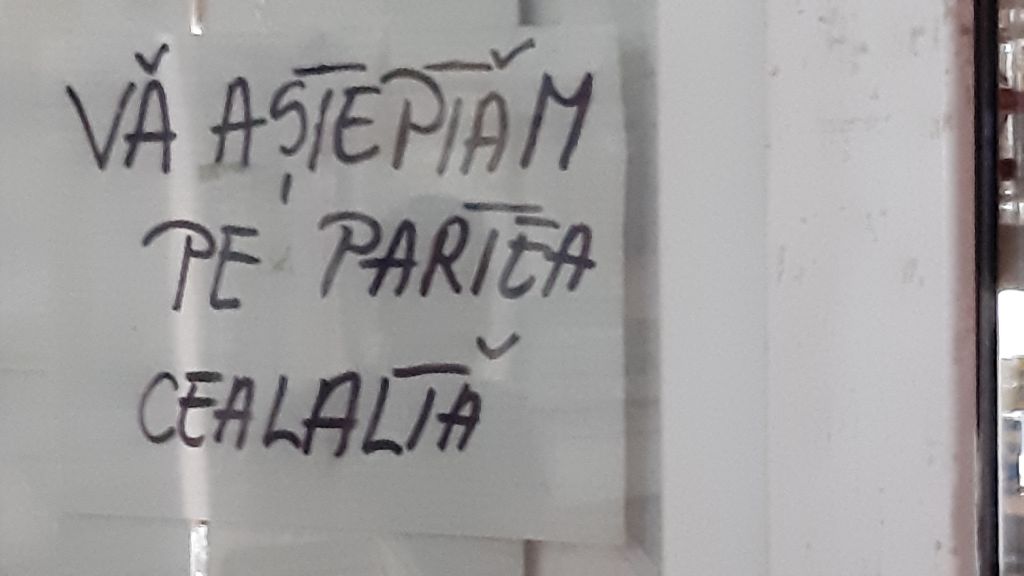 VĂ AȘTEPTĂM
PE PARTEA
CEALALTĂ